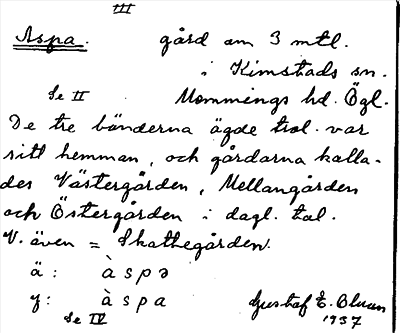 III
Aspa. gård om 3 mtl.
i Kimstads sn.
Se II Memmings hd. Ögl.
De tre bönderna ägde trol. var
sitt hemman, och gårdarna kalla-
des Västergården, Mellangården
och Östergården i dagl. tal.
V. även = Skattegården.
ä: àspə
y: àspa
Se IV Gustaf E. Bluun
1937